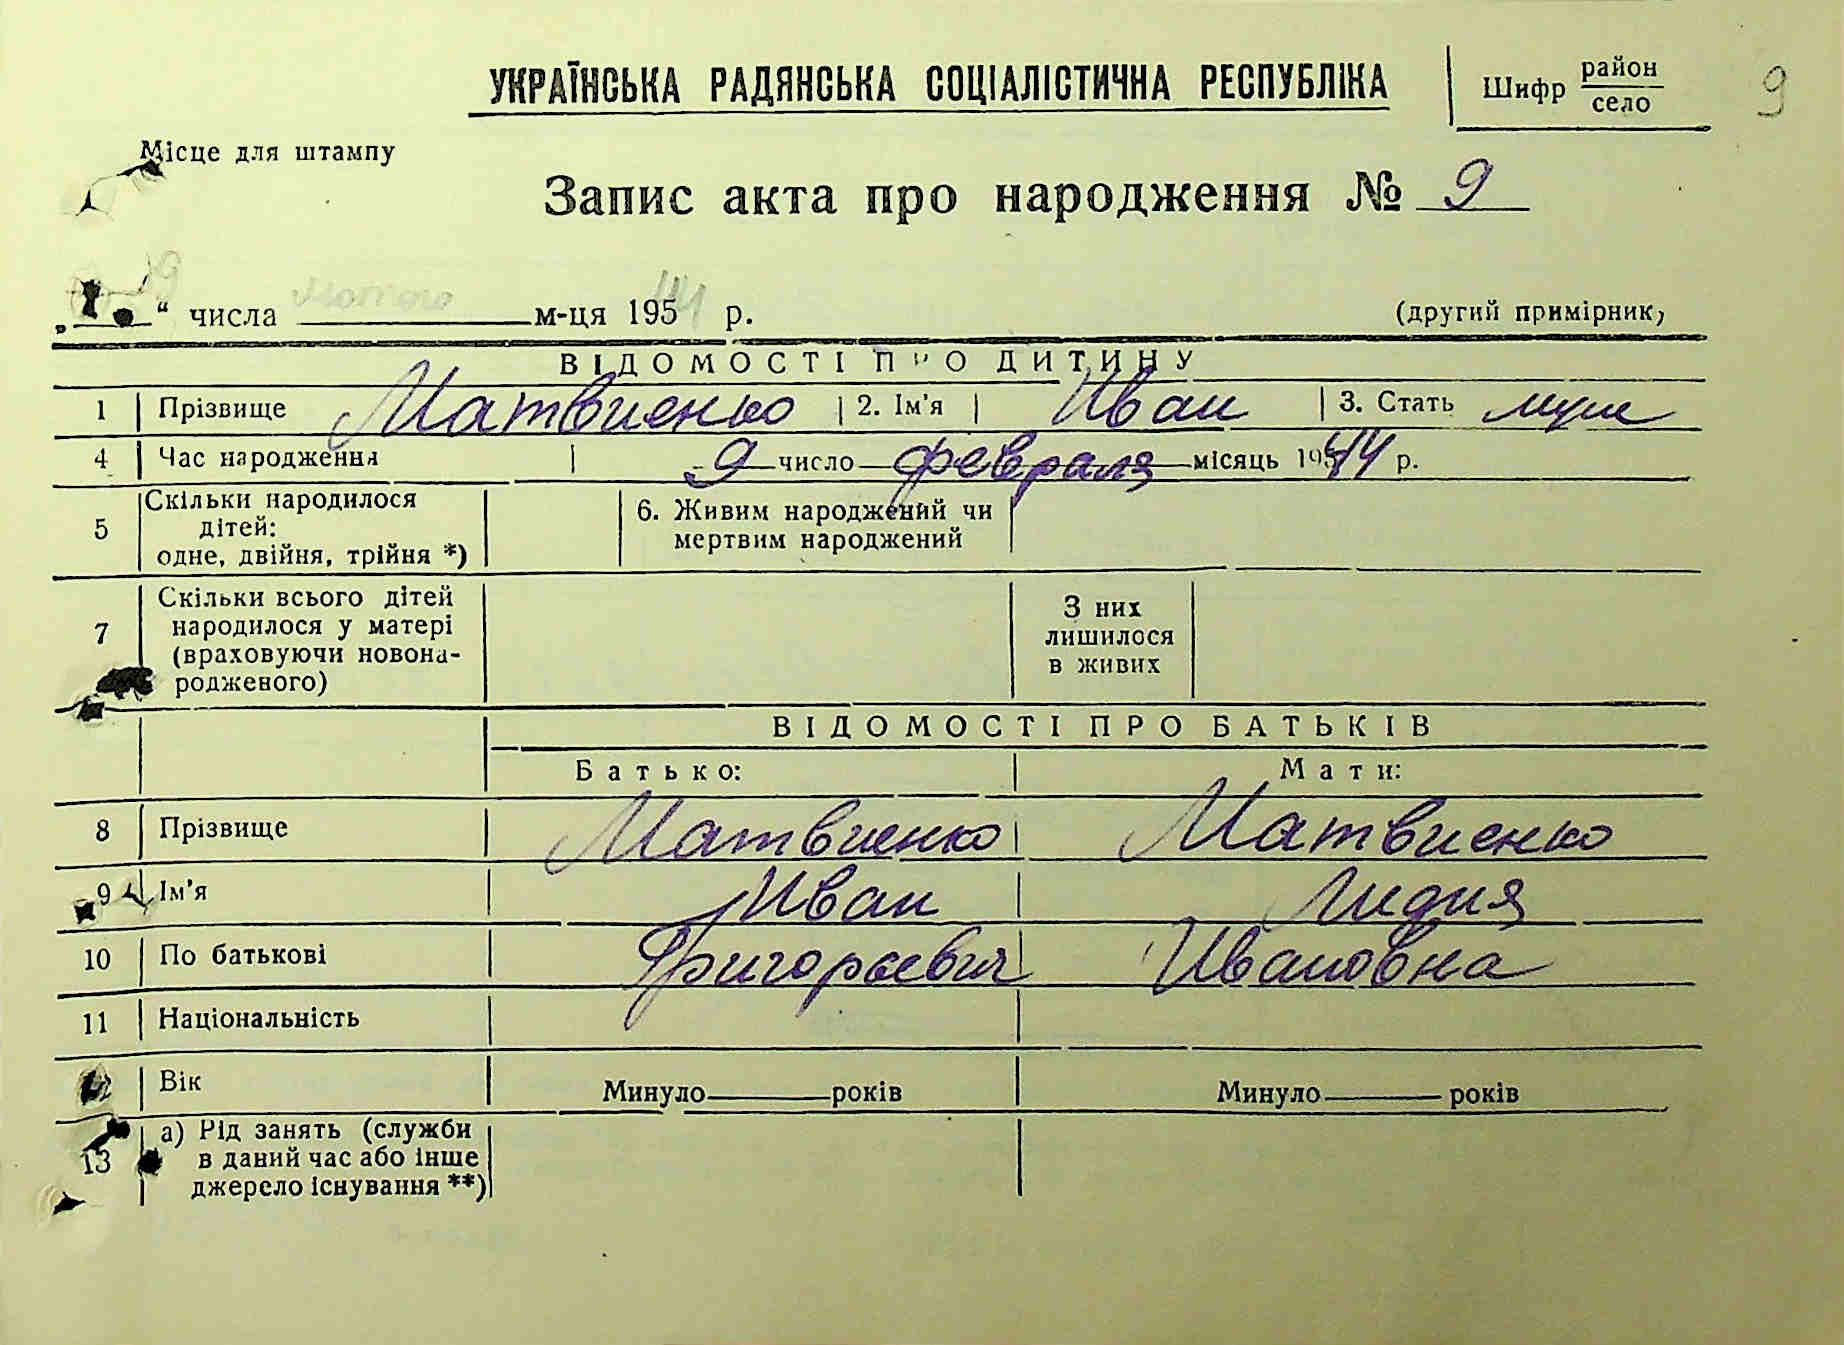 УКРАЇНСЬКА РАДЯНСЬКА СОЦІАЛІСТИЧНА РЕСПУБЛІКА
Шифр район
село
9
Місце для штампу
Запис акта про народження № 9
„ “ числа м-ця 195 44 р.
(другий примірник)
ВІДОМОСТІ ПРО ДИТИНУ
1 Прізвище Матвиенко 2. Ім'я Иван 3. Стать муж
4 Час народження 9 число февраля місяць 1944 р.
5 Скільки народилося дітей: одне, двійня, трійня *) 6. Живим народжений чи мертвим народжений
7 Скільки всього дітей народилося у матері (враховуючи новонародженого) З них лишилося в живих
ВІДОМОСТІ ПРО БАТЬКІВ
Батько: Мати:
8 Прізвище Матвиенко Матвиенко
9 Ім'я Иван Лидия
10 По батькові Григорьевич Ивановна
11 Національність
12 Вік Минуло року років Минуло років
13 а) Рід занять (служби в даний час або інше джерело існування **)